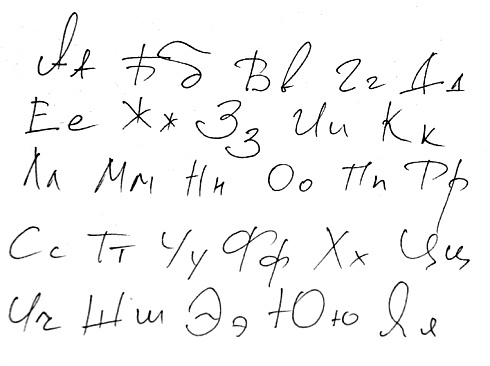 Аа Бб Вв Гг Дд
Ее Жж Зз Ии Кк
Лл Мм Нн Оо Пп Рр
Сс Тт Уу Фф Хх Цц
Чч Шш Ээ Юю Яя